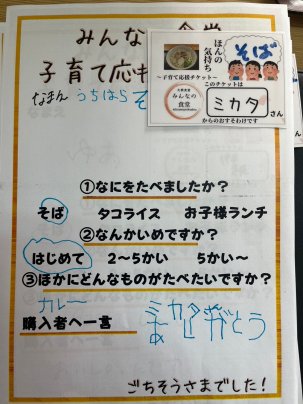 みんな 食堂
子育て応
なまえ うちはら そ
ほんの気持ち
そば
～子育て応援チケット～
このチケットは
みんなの食堂
ミカタ さん
からのおすそわけです
①なにをたべましたか？
そば タコライス お子様ランチ
②なんかいめですか？
はじめて 2～5かい 5かい～
③ほかにどんなものがたべたいですか？
カレー
購入者へ一言
ミカタ
ありがとう
ごちそうさまでした！